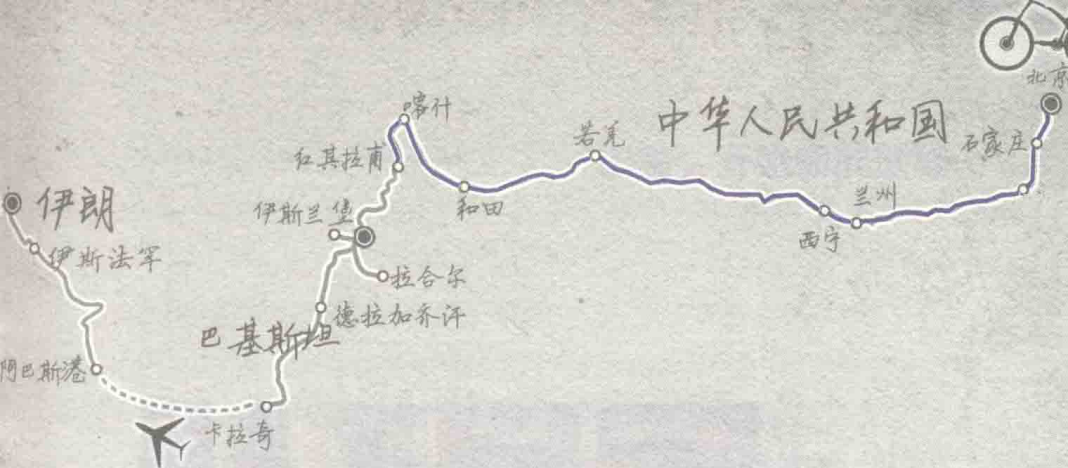 北京
喀什
中华人民共和国
若羌
石家庄
红其拉甫
兰州
伊朗
和田
伊斯兰堡
西宁
伊斯法罕
拉合尔
德拉加齐汗
巴基斯坦
阿巴斯港
卡拉奇